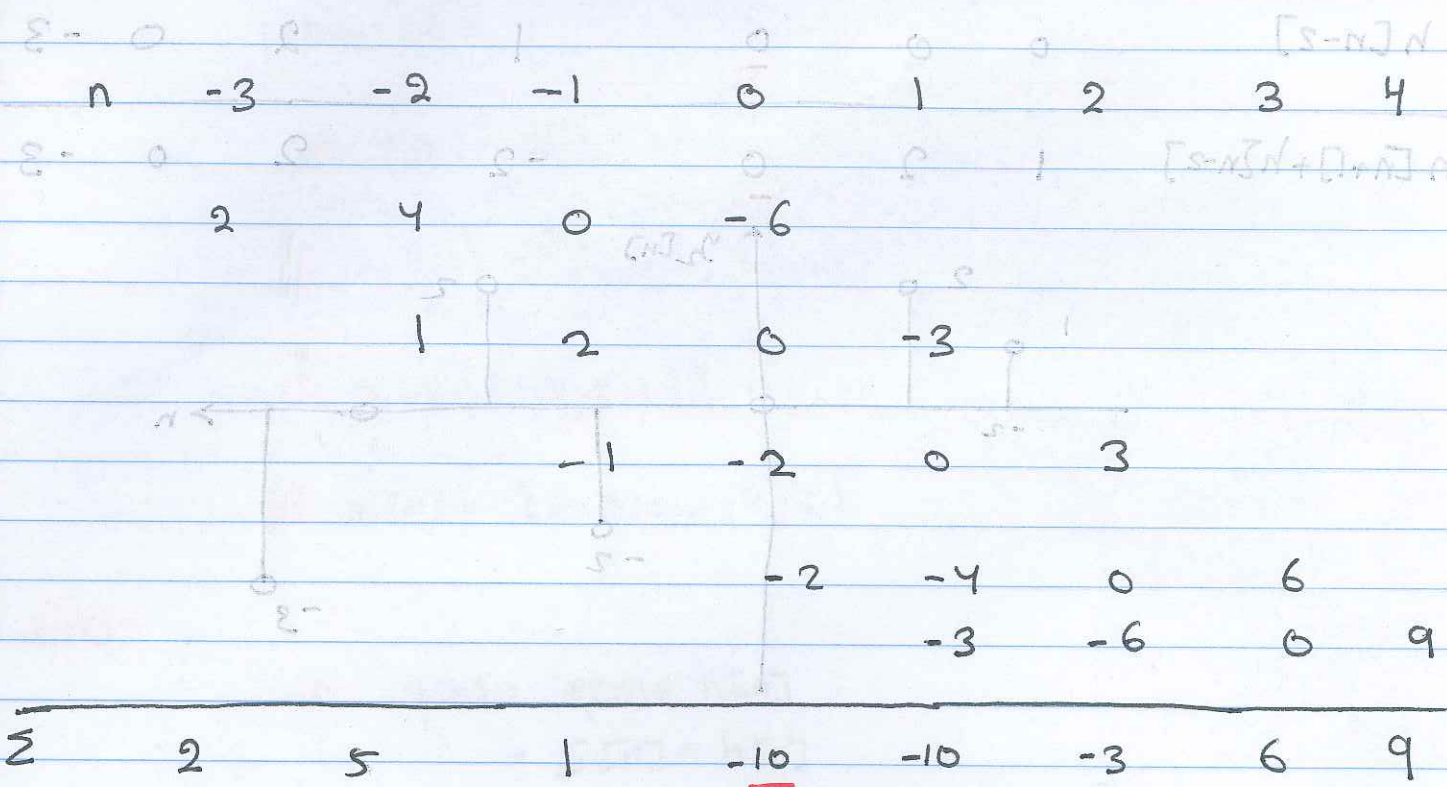 n -3 -2 -1 0 1 2 3 4
2 4 0 -6
1 2 0 -3
-1 -2 0 3
-2 -4 0 6
-3 -6 0 9
Σ 2 5 1 -10 -10 -3 6 9